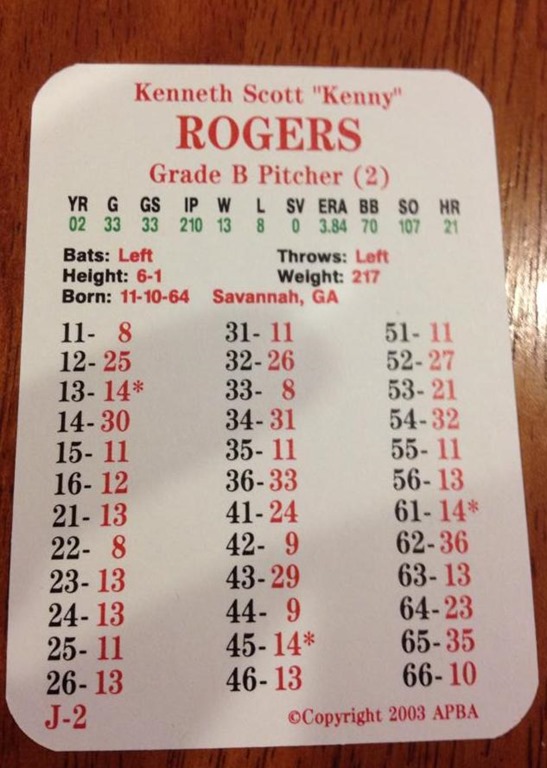 Kenneth Scott "Kenny"
ROGERS
Grade B Pitcher (2)
YR G GS IP W L SV ERA BB SO HR
02 33 33 210 13 8 0 3.84 70 107 21
Bats: Left Throws: Left
Height: 6-1 Weight: 217
Born: 11-10-64 Savannah, GA
11- 8 31- 11 51- 11
12- 25 32- 26 52- 27
13- 14* 33- 8 53- 21
14- 30 34- 31 54- 32
15- 11 35- 11 55- 11
16- 12 36- 33 56- 13
21- 13 41- 24 61- 14*
22- 8 42- 9 62- 36
23- 13 43- 29 63- 13
24- 13 44- 9 64- 23
25- 11 45- 14* 65- 35
26- 13 46- 13 66- 10
J-2 ©Copyright 2003 APBA